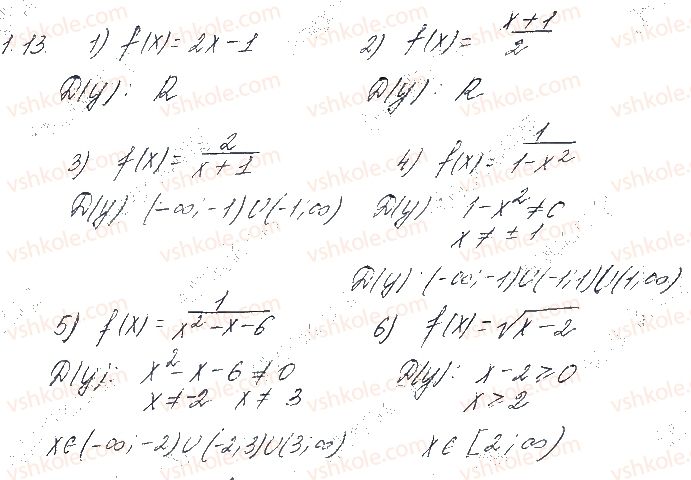 1.13. 1) f(x) = 2x - 1
D(y): R
2) f(x) = (x+1)/2
D(y): R
3) f(x) = 2/(x+1)
D(y): (-∞; -1) ∪ (-1; ∞)
4) f(x) = 1/(1-x²)
D(y) 1-x² ≠ 0
x ≠ ±1
D(y): (-∞; -1) ∪ (-1; 1) ∪ (1; ∞)
5) f(x) = 1/(x²-x-6)
D(y): x² - x - 6 ≠ 0
x ≠ -2 x ≠ 3
x ∈ (-∞; -2) ∪ (-2; 3) ∪ (3; ∞)
6) f(x) = √(x-2)
D(y): x - 2 ≥ 0
x ≥ 2
x ∈ [2; ∞)
vshkole.com